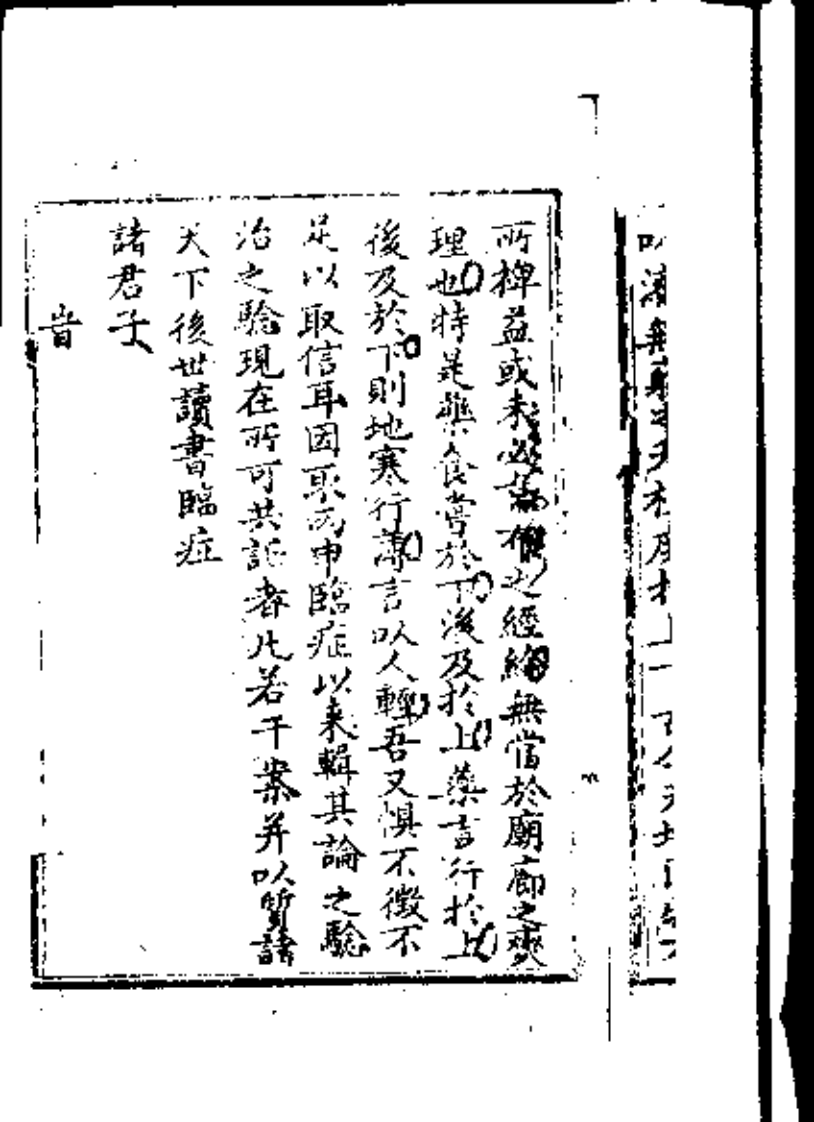 所椑益或未必萬有之經綸無當於廟廊之爕
理也特是藥食嘗於下後及於上藥言行於上
後及於下則地寒行薄言以人輕吾又惧不徵不
足以取信耳因取丙申臨症以来輯其論之騐
治之騐現在所可共訴者凡若干案并以質諸
天下後世讀書臨症
諸君子
旹